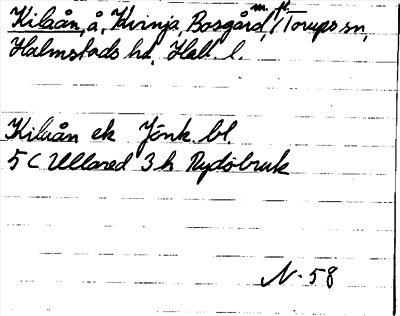 Kilaån, å, Kvinja, Bosgård, m. fl. /Torups sn,
Halmstads hd, Hall. l.
Kilaån ek Jönk. bl.
5 C Ullared 3 h Rydöbruk
N. 58